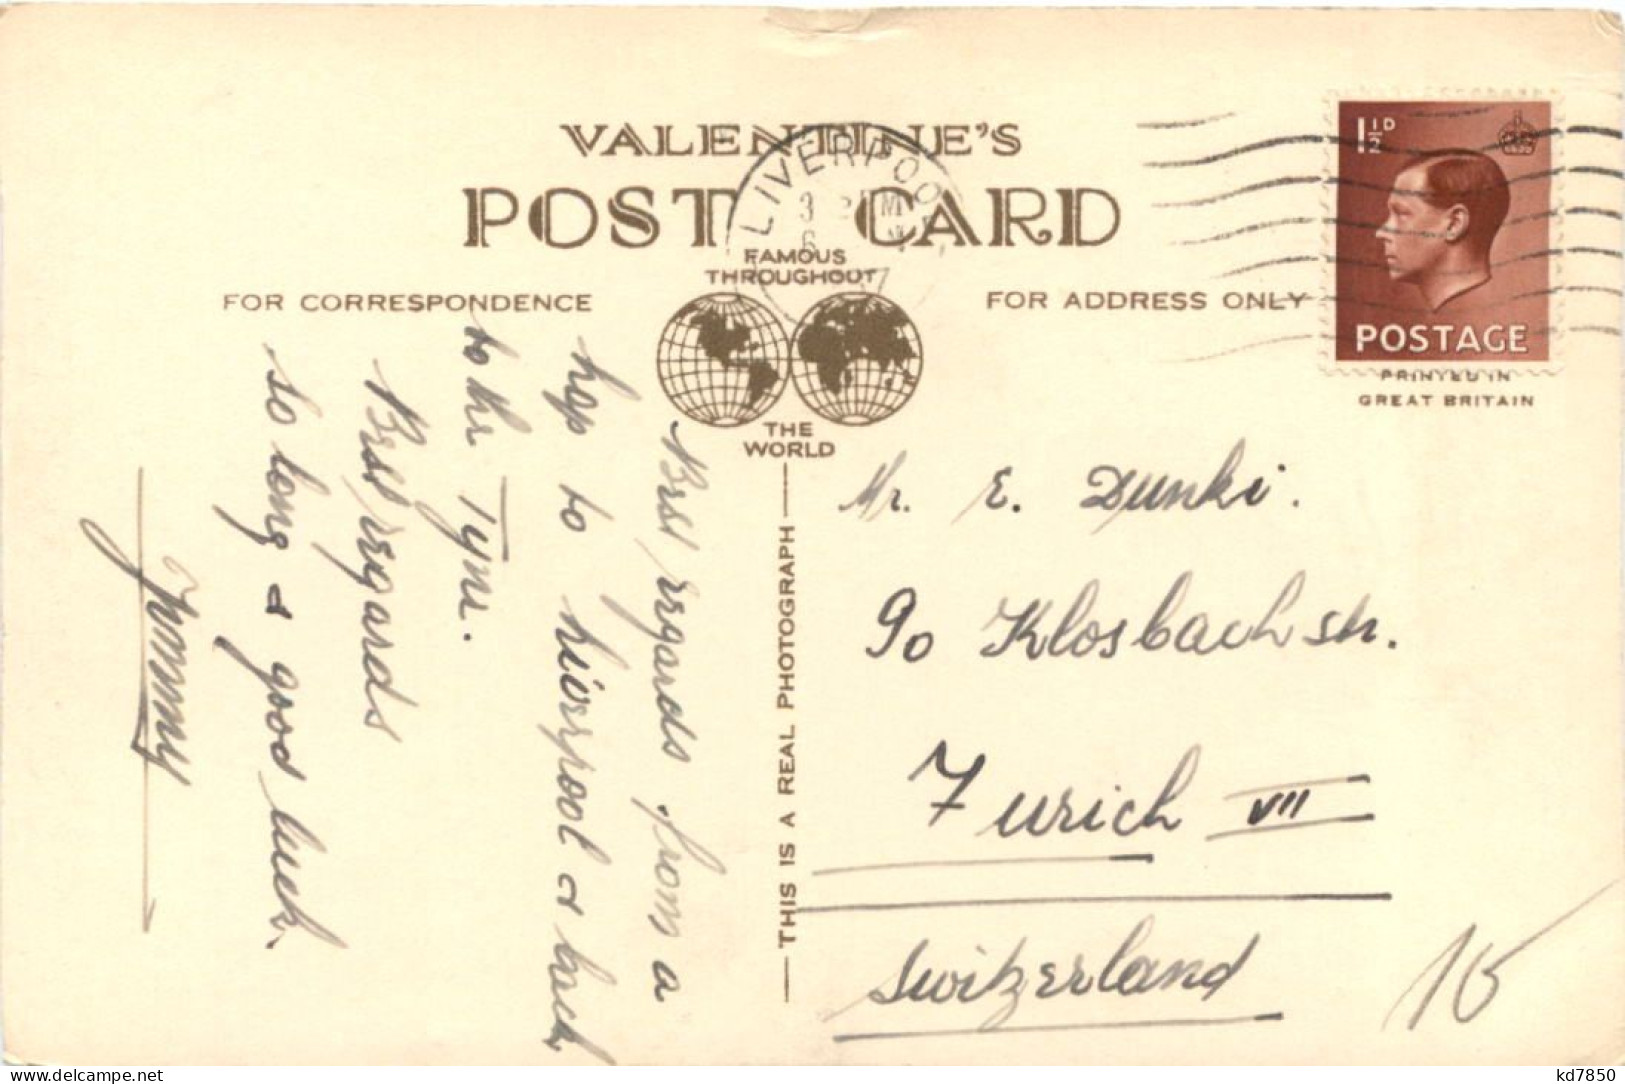 VALENTINE'S
POST CARD
FAMOUS
THROUGHOUT
THE
WORLD
FOR CORRESPONDENCE
FOR ADDRESS ONLY
LIVERPOOL
1½D
POSTAGE
PRINTED IN
GREAT BRITAIN
THIS IS A REAL PHOTOGRAPH
Best regards from a
hop to Liverpool & back
to the Tyne.
Best regards
so long & good luck.
Mr. E. Dunki.
90 Klosbachstr.
Zurich VII
Switzerland
kd7850